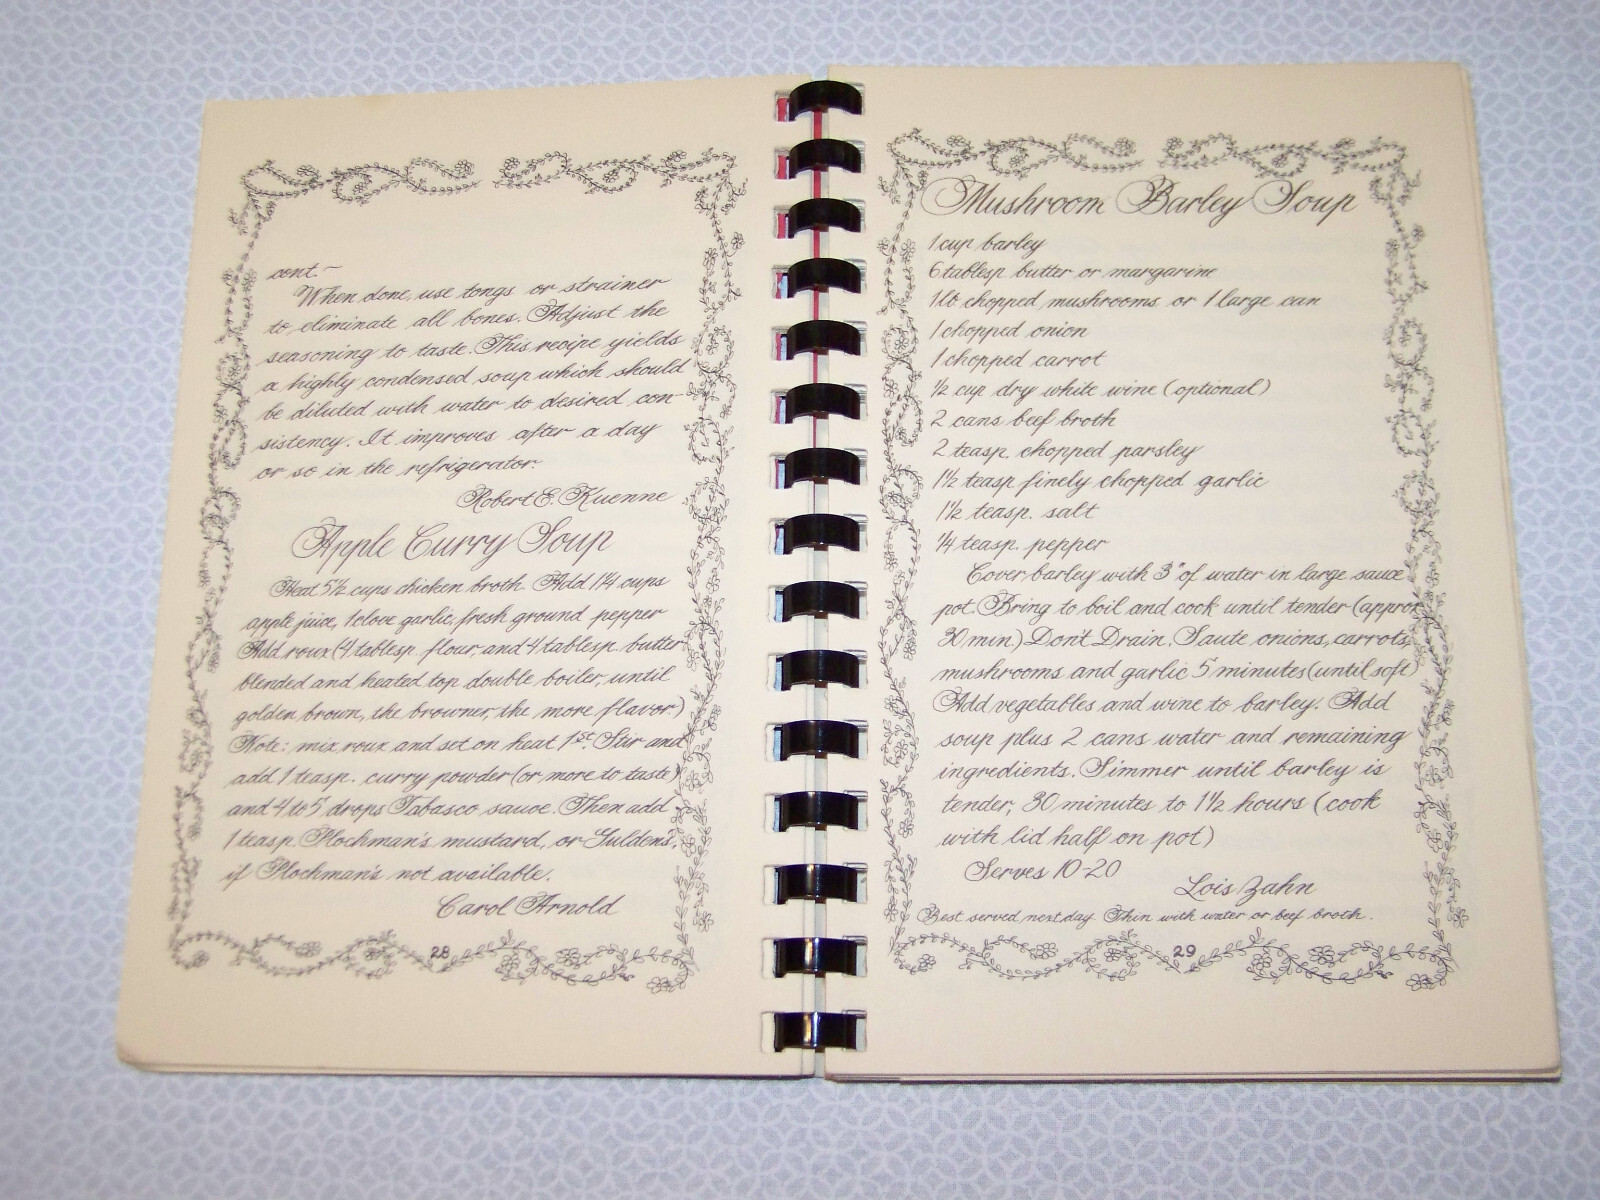 cont.~
When done, use tongs or strainer
to eliminate all bones. Adjust the
seasoning to taste. This recipe yields
a highly condensed soup which should
be diluted with water to desired con-
sistency. It improves after a day
or so in the refrigerator.
Robert E. Kuenne
Apple Curry Soup
Heat 5½ cups chicken broth. Add 1¼ cups
apple juice, 1 clove garlic, fresh ground pepper
Add roux (4 tablesp. flour, and 4 tablesp. butter
blended and heated top double boiler, until
golden brown, the browner, the more flavor)
Note: mix roux and set on heat 1st. Stir and
add 1 teasp. curry powder (or more to taste)
and 4 to 5 drops Tabasco sauce. Then add
1 teasp. Plochman's mustard, or Guldens,
if Plochman's not available.
Carol Arnold
28
Mushroom Barley Soup
1 cup barley
6 tablesp butter or margarine
1 lb chopped mushrooms or 1 large can
1 chopped onion
1 chopped carrot
½ cup dry white wine (optional)
2 cans beef broth
2 teasp chopped parsley
1½ teasp finely chopped garlic
1½ teasp. salt
¼ teasp. pepper
Cover barley with 3" of water in large sauce
pot. Bring to boil and cook until tender (approx
30 min.) Don't Drain. Saute onions, carrots,
mushrooms and garlic 5 minutes (until soft)
Add vegetables and wine to barley. Add
soup plus 2 cans water and remaining
ingredients. Simmer until barley is
tender, 30 minutes to 1½ hours (cook
with lid half on pot)
Serves 10-20
Lois Zahn
Best served next day. Thin with water or beef broth.
29